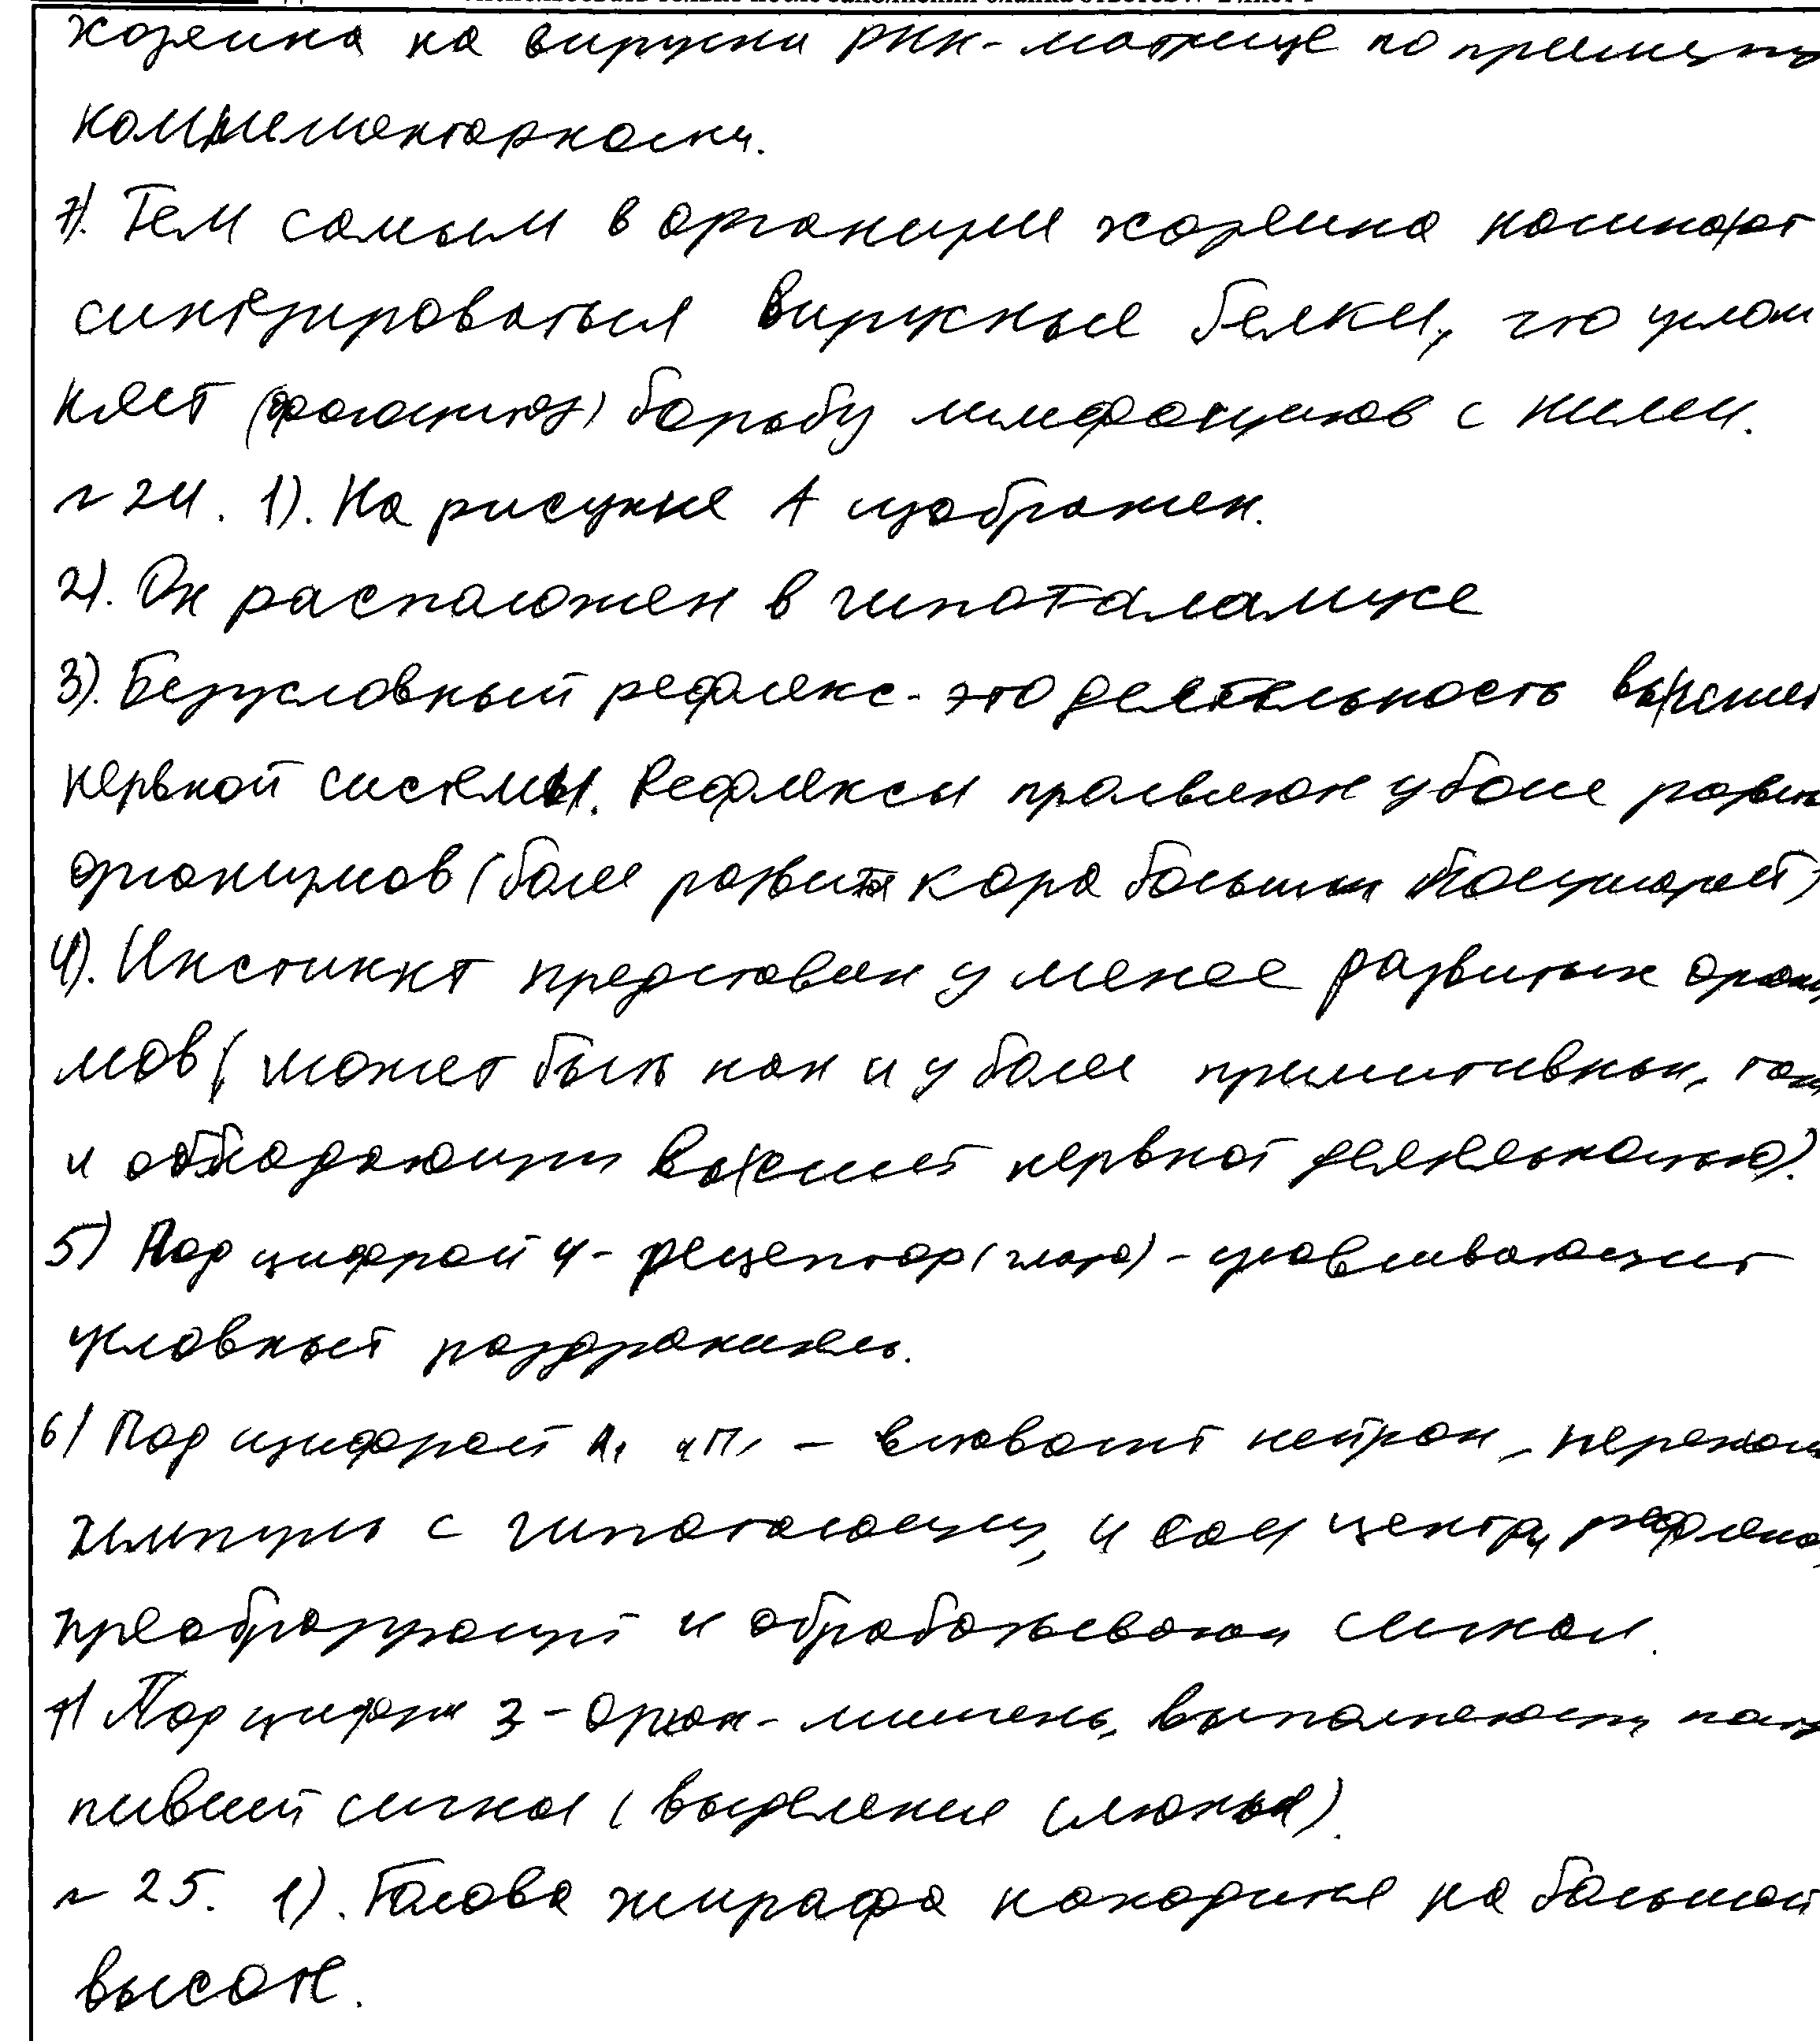 хозяина на вирусной РНК-матрице по принципу
комплементарности.
7). Тем самым в организме хозяина начинают
синтезироваться вирусные белки, что услож
няет борьбу лимфоцитов с ними.
№24. 1). На рисунке А изображен.
2). Он расположен в гипоталамусе
3). Безусловный рефлекс - это деятельность высшей
нервной системы. Рефлексы у более
организмов (более развитая кора больших полушарий)
4). Инстинкт представлен у менее развитых организ
мов (может быть как и у более примитивных, так
и обладающих высшей нервной деятельностью).
5) Под цифрой 4 - рецептор (глаза) - улавливающий
условный раздражитель.
6) Под цифрой - вставочный нейрон,
импульс с и сам центр рефлекса,
преобразующий и обрабатывающий сигнал.
7) Под цифрой 3 - орган-мишень, выполняющий посту
пивший сигнал (выделение слюны).
№25. 1). Голова жирафа находится на большой
высоте.